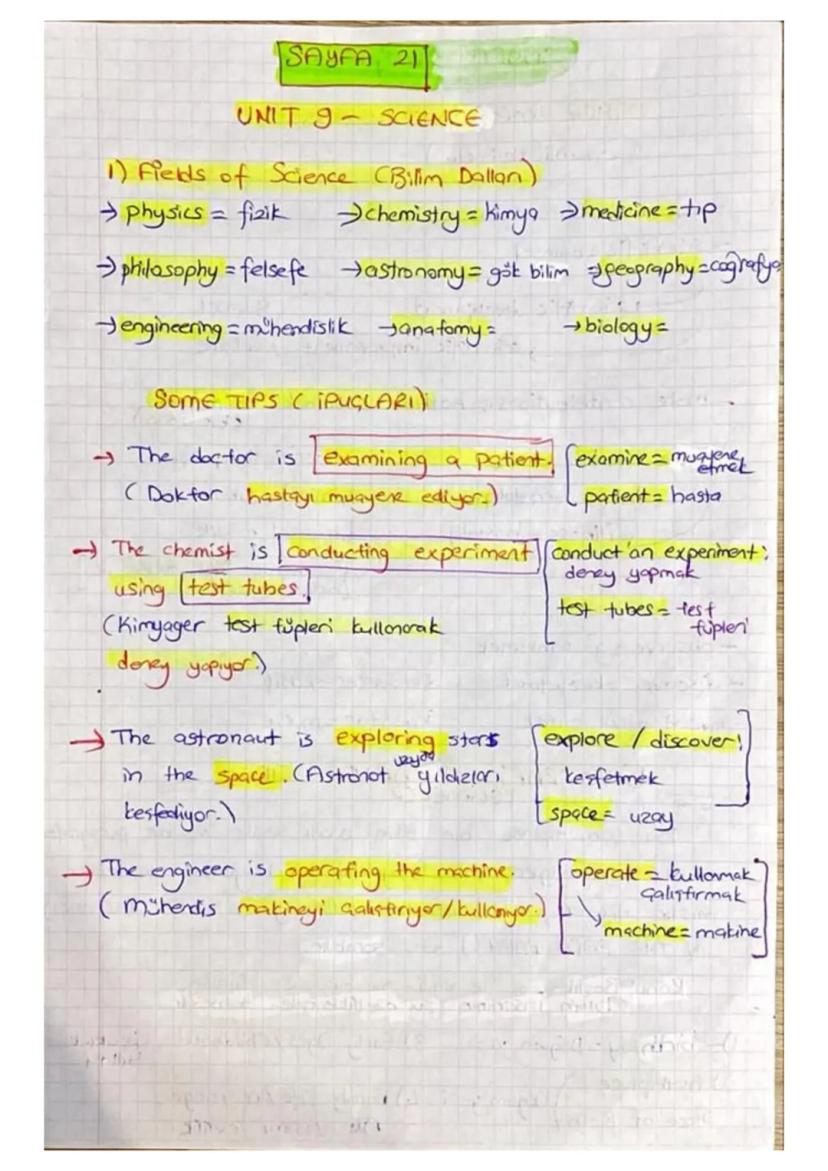 SAYFA 21
UNIT 9 - SCIENCE
1) Fields of Science (Bilim Dalları)
→ physics = fizik → chemistry = kimya → medicine = tıp
→ philosophy = felsefe → astronomy = gök bilim → geography = coğrafya
→ engineering = mühendislik → anatomy = → biology =
SOME TIPS (İPUÇLARI)
→ The doctor is examining a patient. examine = muayene etmek
(Doktor hastayı muayene ediyor.) patient = hasta
→ The chemist is conducting experiment conduct an experiment:
deney yapmak
using test tubes. test tubes = test
tüpleri
(Kimyager test tüpleri kullanarak
deney yapıyor.)
→ The astronaut is exploring stars explore / discover:
in the space. (Astronot uzayda yıldızları keşfetmek
keşfediyor.) space = uzay
→ The engineer is operating the machine. operate = kullanmak
çalıştırmak
(Mühendis makineyi çalıştırıyor/kullanıyor.) machine = makine